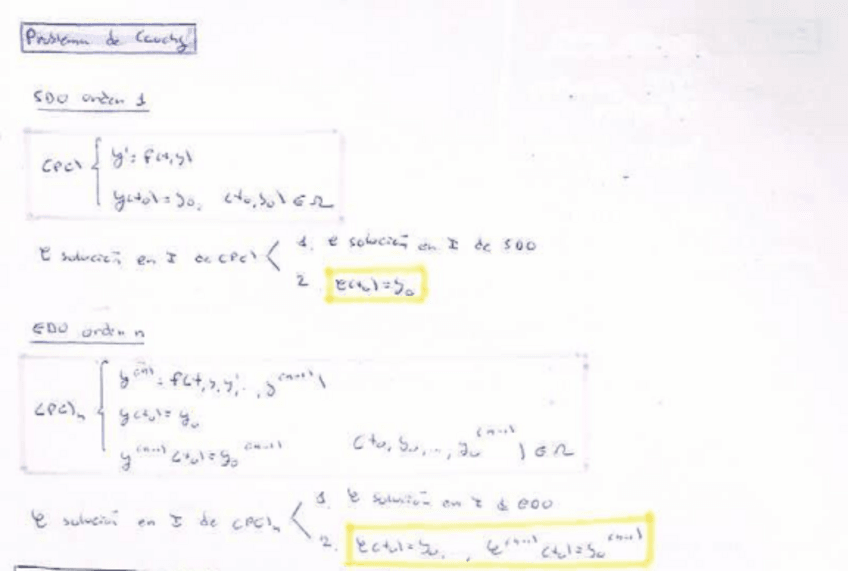 Problema de Cauchy
SDO orden 1
(PC) { y' = f(t,y)
y(t₀) = y₀, (t₀,y₀) ∈ Ω
φ solución en I de (PC) < 1. φ solución en I de SDO
2. φ(t₀) = y₀
EDO orden n
(PC)ₙ { y⁽ⁿ⁾ = f(t,y,y',..,y⁽ⁿ⁻¹⁾)
y(t₀) = y₀
y⁽ⁿ⁻¹⁾(t₀) = y₀⁽ⁿ⁻¹⁾ (t₀,y₀,..,y₀⁽ⁿ⁻¹⁾) ∈ Ω
φ solución en I de (PC)ₙ < 1. φ solución en I de EDO
2. φ(t₀) = y₀, .., φ⁽ⁿ⁻¹⁾(t₀) = y₀⁽ⁿ⁻¹⁾